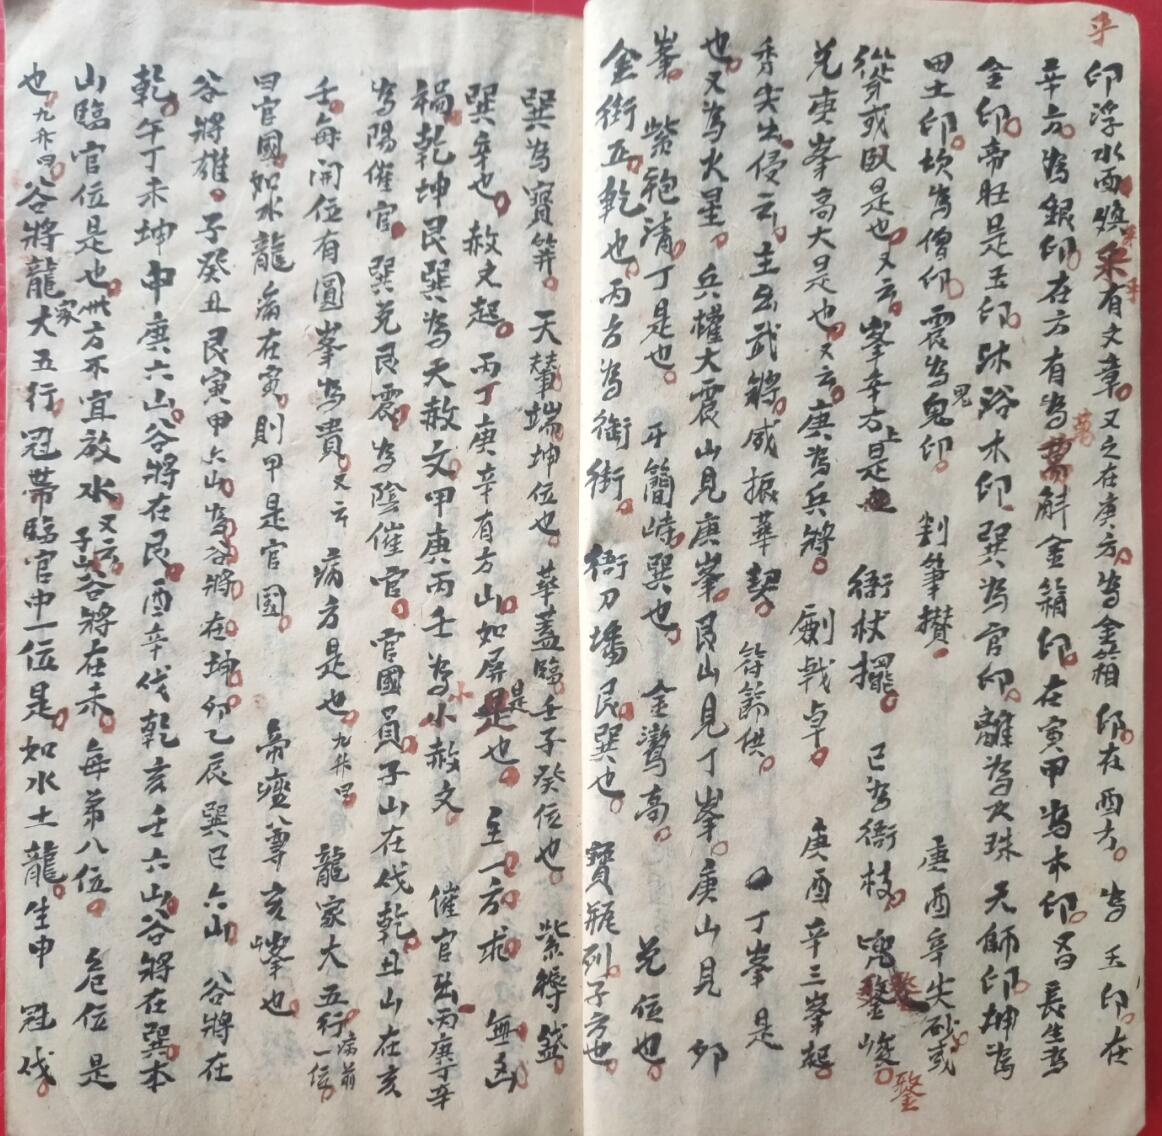 印浮水面煥乎有文章又之在庚方為金箱印在酉方為玉印在
辛方為銀印在方有為萬斛金箱印在寅甲為木印長生為
金印帝旺是玉印沐浴木印巽為官印離為火珠天師印坤為
田土印坎為僧印震為鬼印 判筆攅 庚酉辛尖砂或
從或臥是也又云峯辛方上是 衙杖擺 巳為衙枝 峻
兌庚峯高大是也又云庚為兵將 劍戟卓 庚酉辛三峯起
秀尖出侵云主出武將威振華 符節供 丁峯是
也又為火星兵權大震山見庚峯艮山見丁峯庚山見卯
峯 紫袍清丁是也 牙簡峙巽也 金鸞高 兌位也
金街五乾也丙方為衙街 衙刀 艮巽也 寶瓶列子方也
巽為寶 天輦端坤位也 華蓋臨壬子癸位也 紫
巽辛也 赦文起丙丁庚辛有方山如屏是也 主一方求無凶
禍乾坤艮巽為天赦文甲庚丙壬為小赦文 催官出丙庚丁辛
為陽催官巽兌艮震為陰催官 官國員子山在戌乾丑山在亥
壬每開位有圓峯為貴又云病方是也九升 龍家大五行病前一位
曰官國如水龍病在寅則甲是官國 帝座尊亥峰也
谷將雄子癸丑艮寅甲六山為谷將在坤卯乙辰巽巳六山谷將在
乾午丁未坤申庚六山谷將在艮酉辛戌乾亥壬六山谷將在巽本
山臨官位是也此方不宜放水又云子山谷將在未每第八位危位是
也九升谷將龍家大五行冠帶臨官中一位是如水土龍生申冠戌